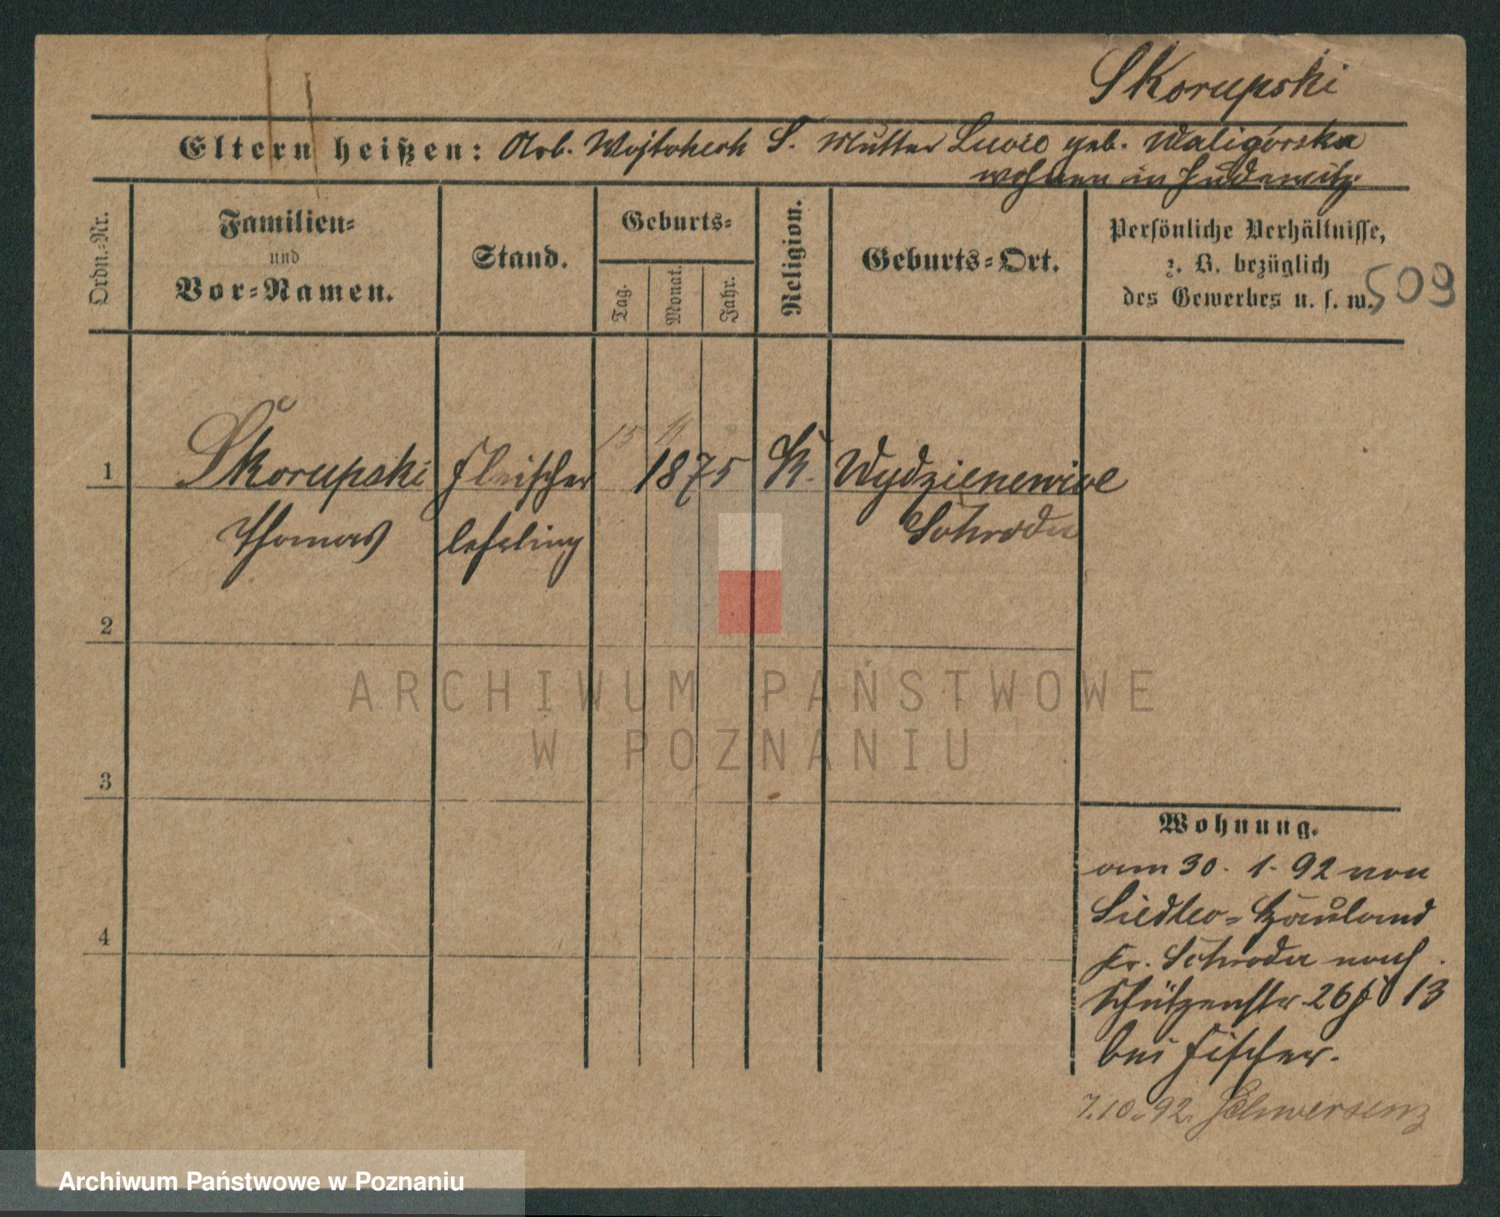 Skorupski
Eltern heißen: Arb. Wojtchech S. Mutter Lucie geb. Waligórska
wohnen in Pudewitz.
Ordn.-Nr.
Familien-
und
Vor-Namen.
Stand.
Geburts-
Tag.
Monat.
Jahr.
Religion.
Geburts-Ort.
Persönliche Verhältnisse,
z. B. bezüglich
des Gewerbes u. s. w.
509
1
Skorupski Fleischer 15 1875 K.
Thomas lehrling Schroda
2
3
4
Wohnung.
am 30. 1. 92 von
Siedlec-Hauland
Kr. Schroda nach
Schützenstr. 26 13
bei Fischer.
7.10.92. Schwersenz
ARCHIWUM PAŃSTWOWE
W POZNANIU
Archiwum Państwowe w Poznaniu